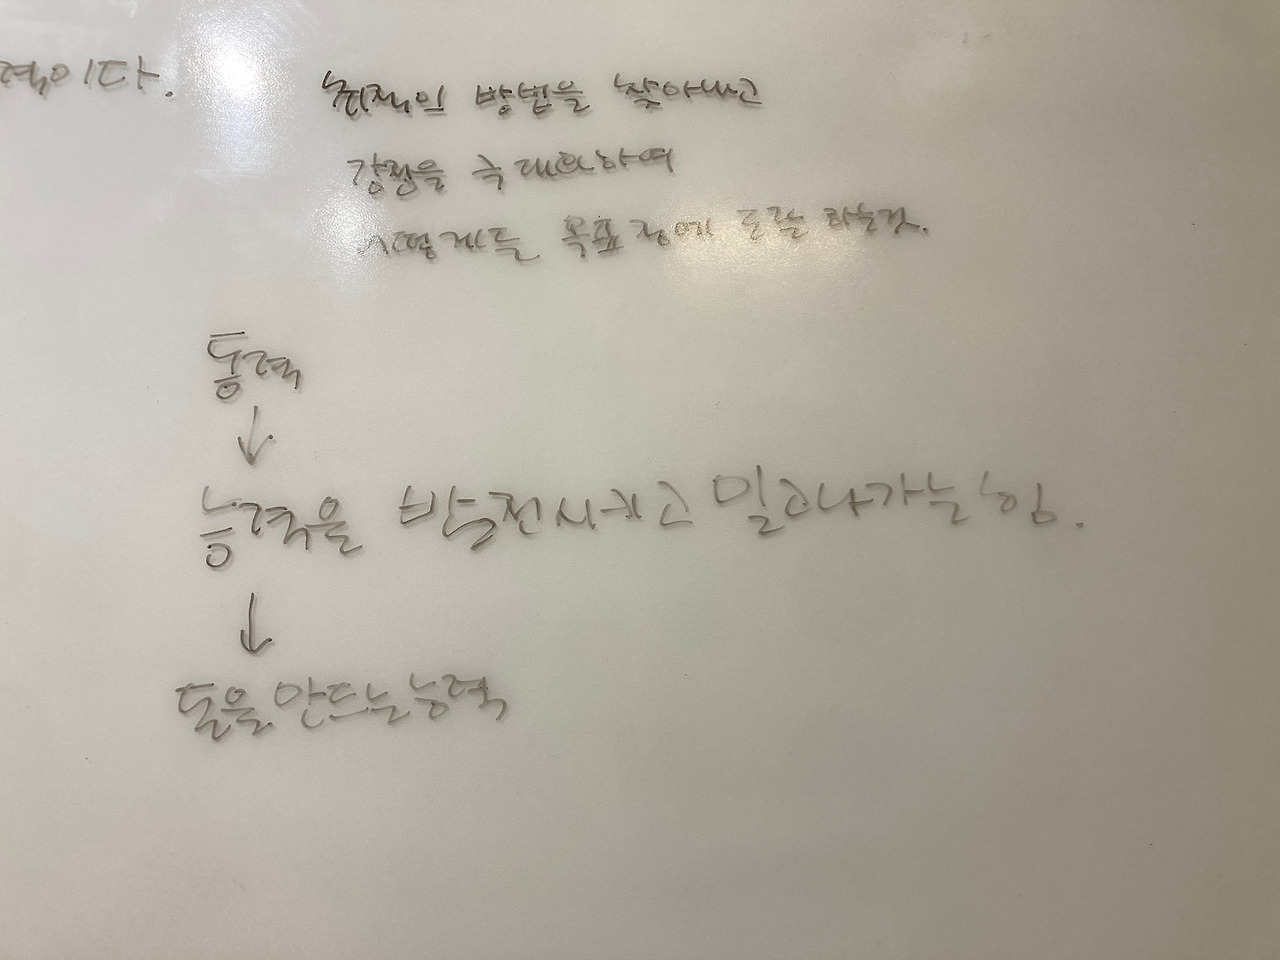 력이다.
최적의 방법을 찾아내고
강점을 극대화하여
어떻게든 목표점에 도달 하는것.
동력
↓
능력을 발전시키고 밀고나가는 힘.
↓
돈을 만드는 능력